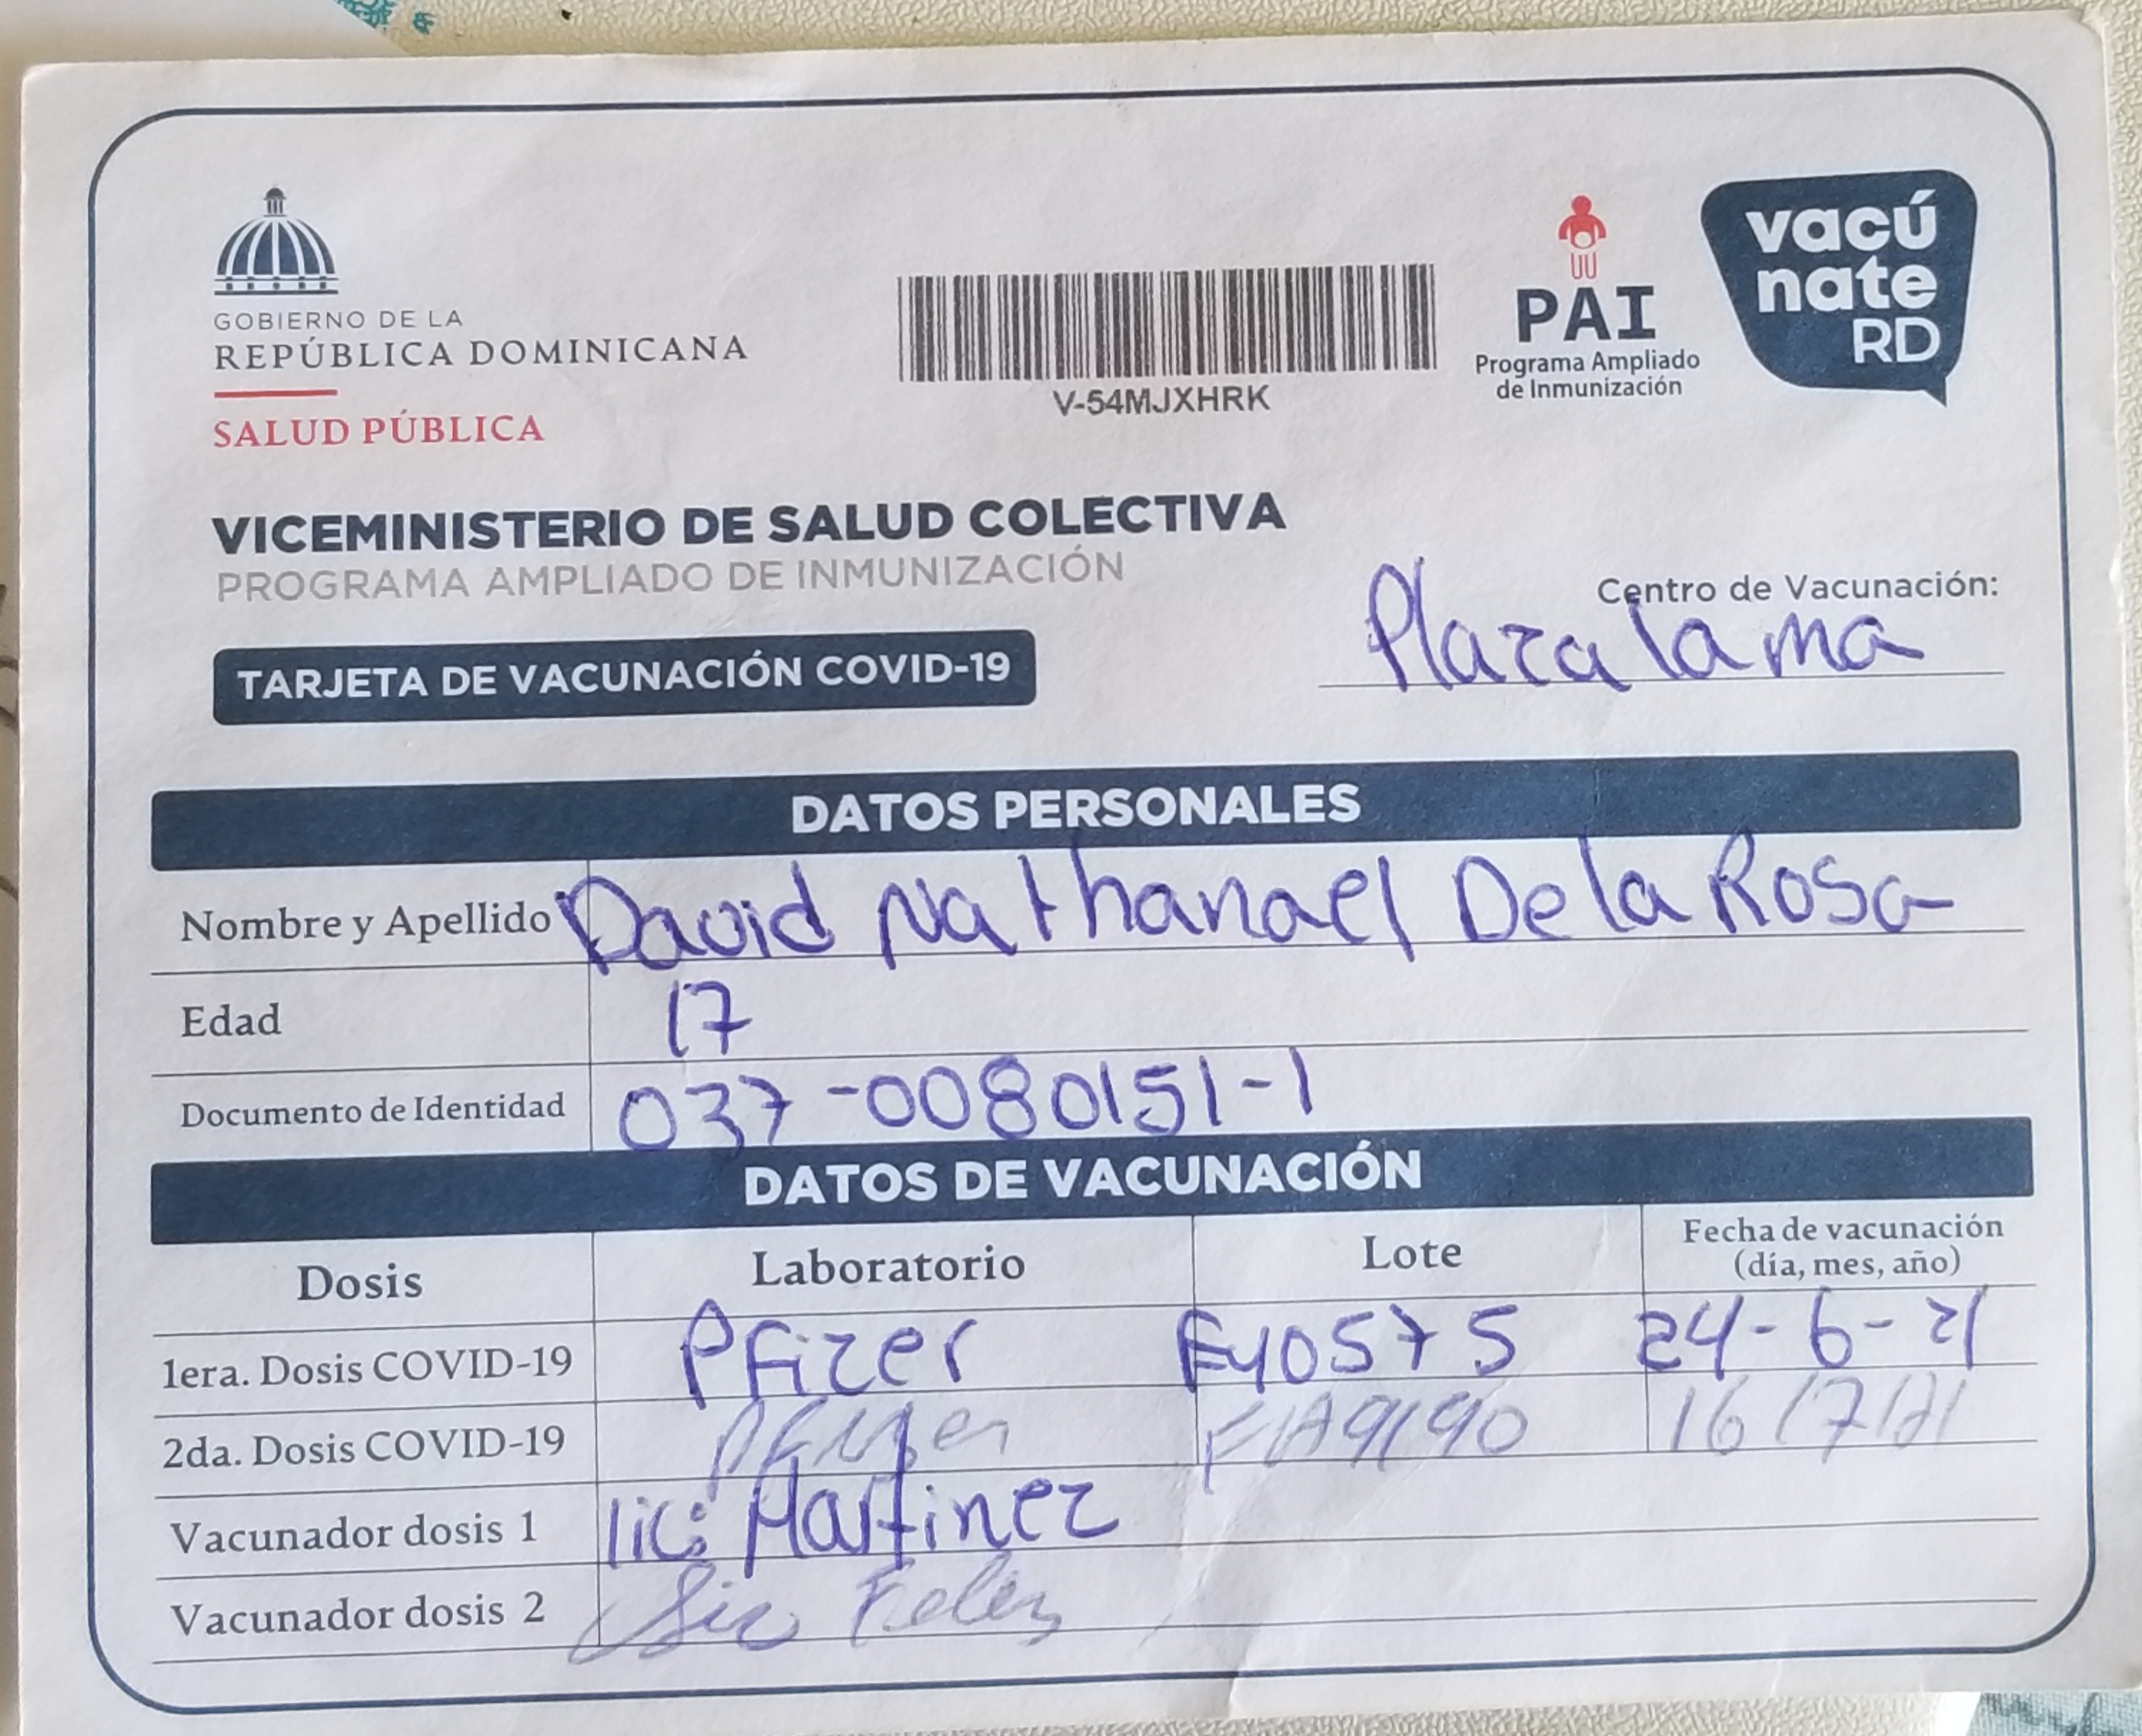 GOBIERNO DE LA
REPÚBLICA DOMINICANA
SALUD PÚBLICA
V-54MJXHRK
PAI
Programa Ampliado
de Inmunización
vacú
nate
RD
VICEMINISTERIO DE SALUD COLECTIVA
PROGRAMA AMPLIADO DE INMUNIZACIÓN
Centro de Vacunación:
Plaza lama
TARJETA DE VACUNACIÓN COVID-19
DATOS PERSONALES
Nombre y Apellido David Nathanael De la Rosa
Edad 17
Documento de Identidad 037-0080151-1
DATOS DE VACUNACIÓN
Dosis Laboratorio Lote Fecha de vacunación
(día, mes, año)
1era. Dosis COVID-19 Pfizer 24-6-21
2da. Dosis COVID-19 Pfizer 16/7/21
Vacunador dosis 1 lic: Martinez
Vacunador dosis 2 Lic